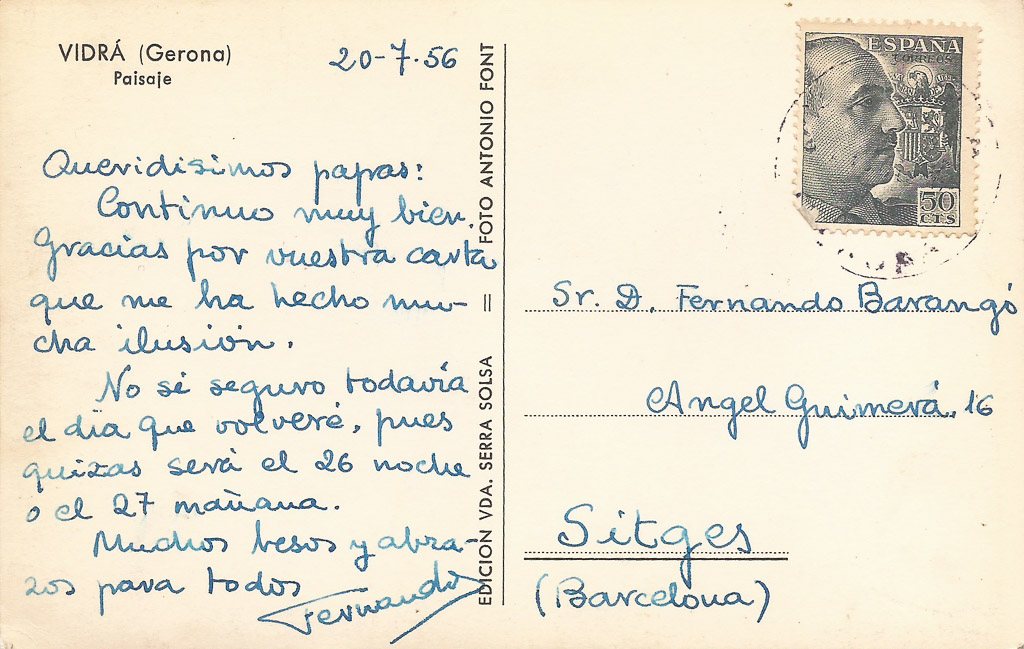 VIDRÁ (Gerona)
Paisaje
20-7-56
Queridisimos papas:
Continuo muy bien.
Gracias por vuestra carta
que me ha hecho mu-
cha ilusión.
No sé seguro todavía
el día que volveré, pues
quizas será el 26 noche
o el 27 mañana.
Muchos besos y abra-
zos para todos
Fernando
EDICION VDA. SERRA SOLSA = FOTO ANTONIO FONT
ESPAÑA
CORREOS
50
CTS
Sr. D. Fernando Barangó
Angel Guimerá, 16
Sitges
(Barcelona)